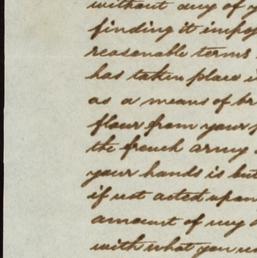 without any of y
finding it imposs
reasonable terms
has taken place i
as a means of br
flour from your p
the french army
your hands is but
if not acted upon
amount of my d
with what you w